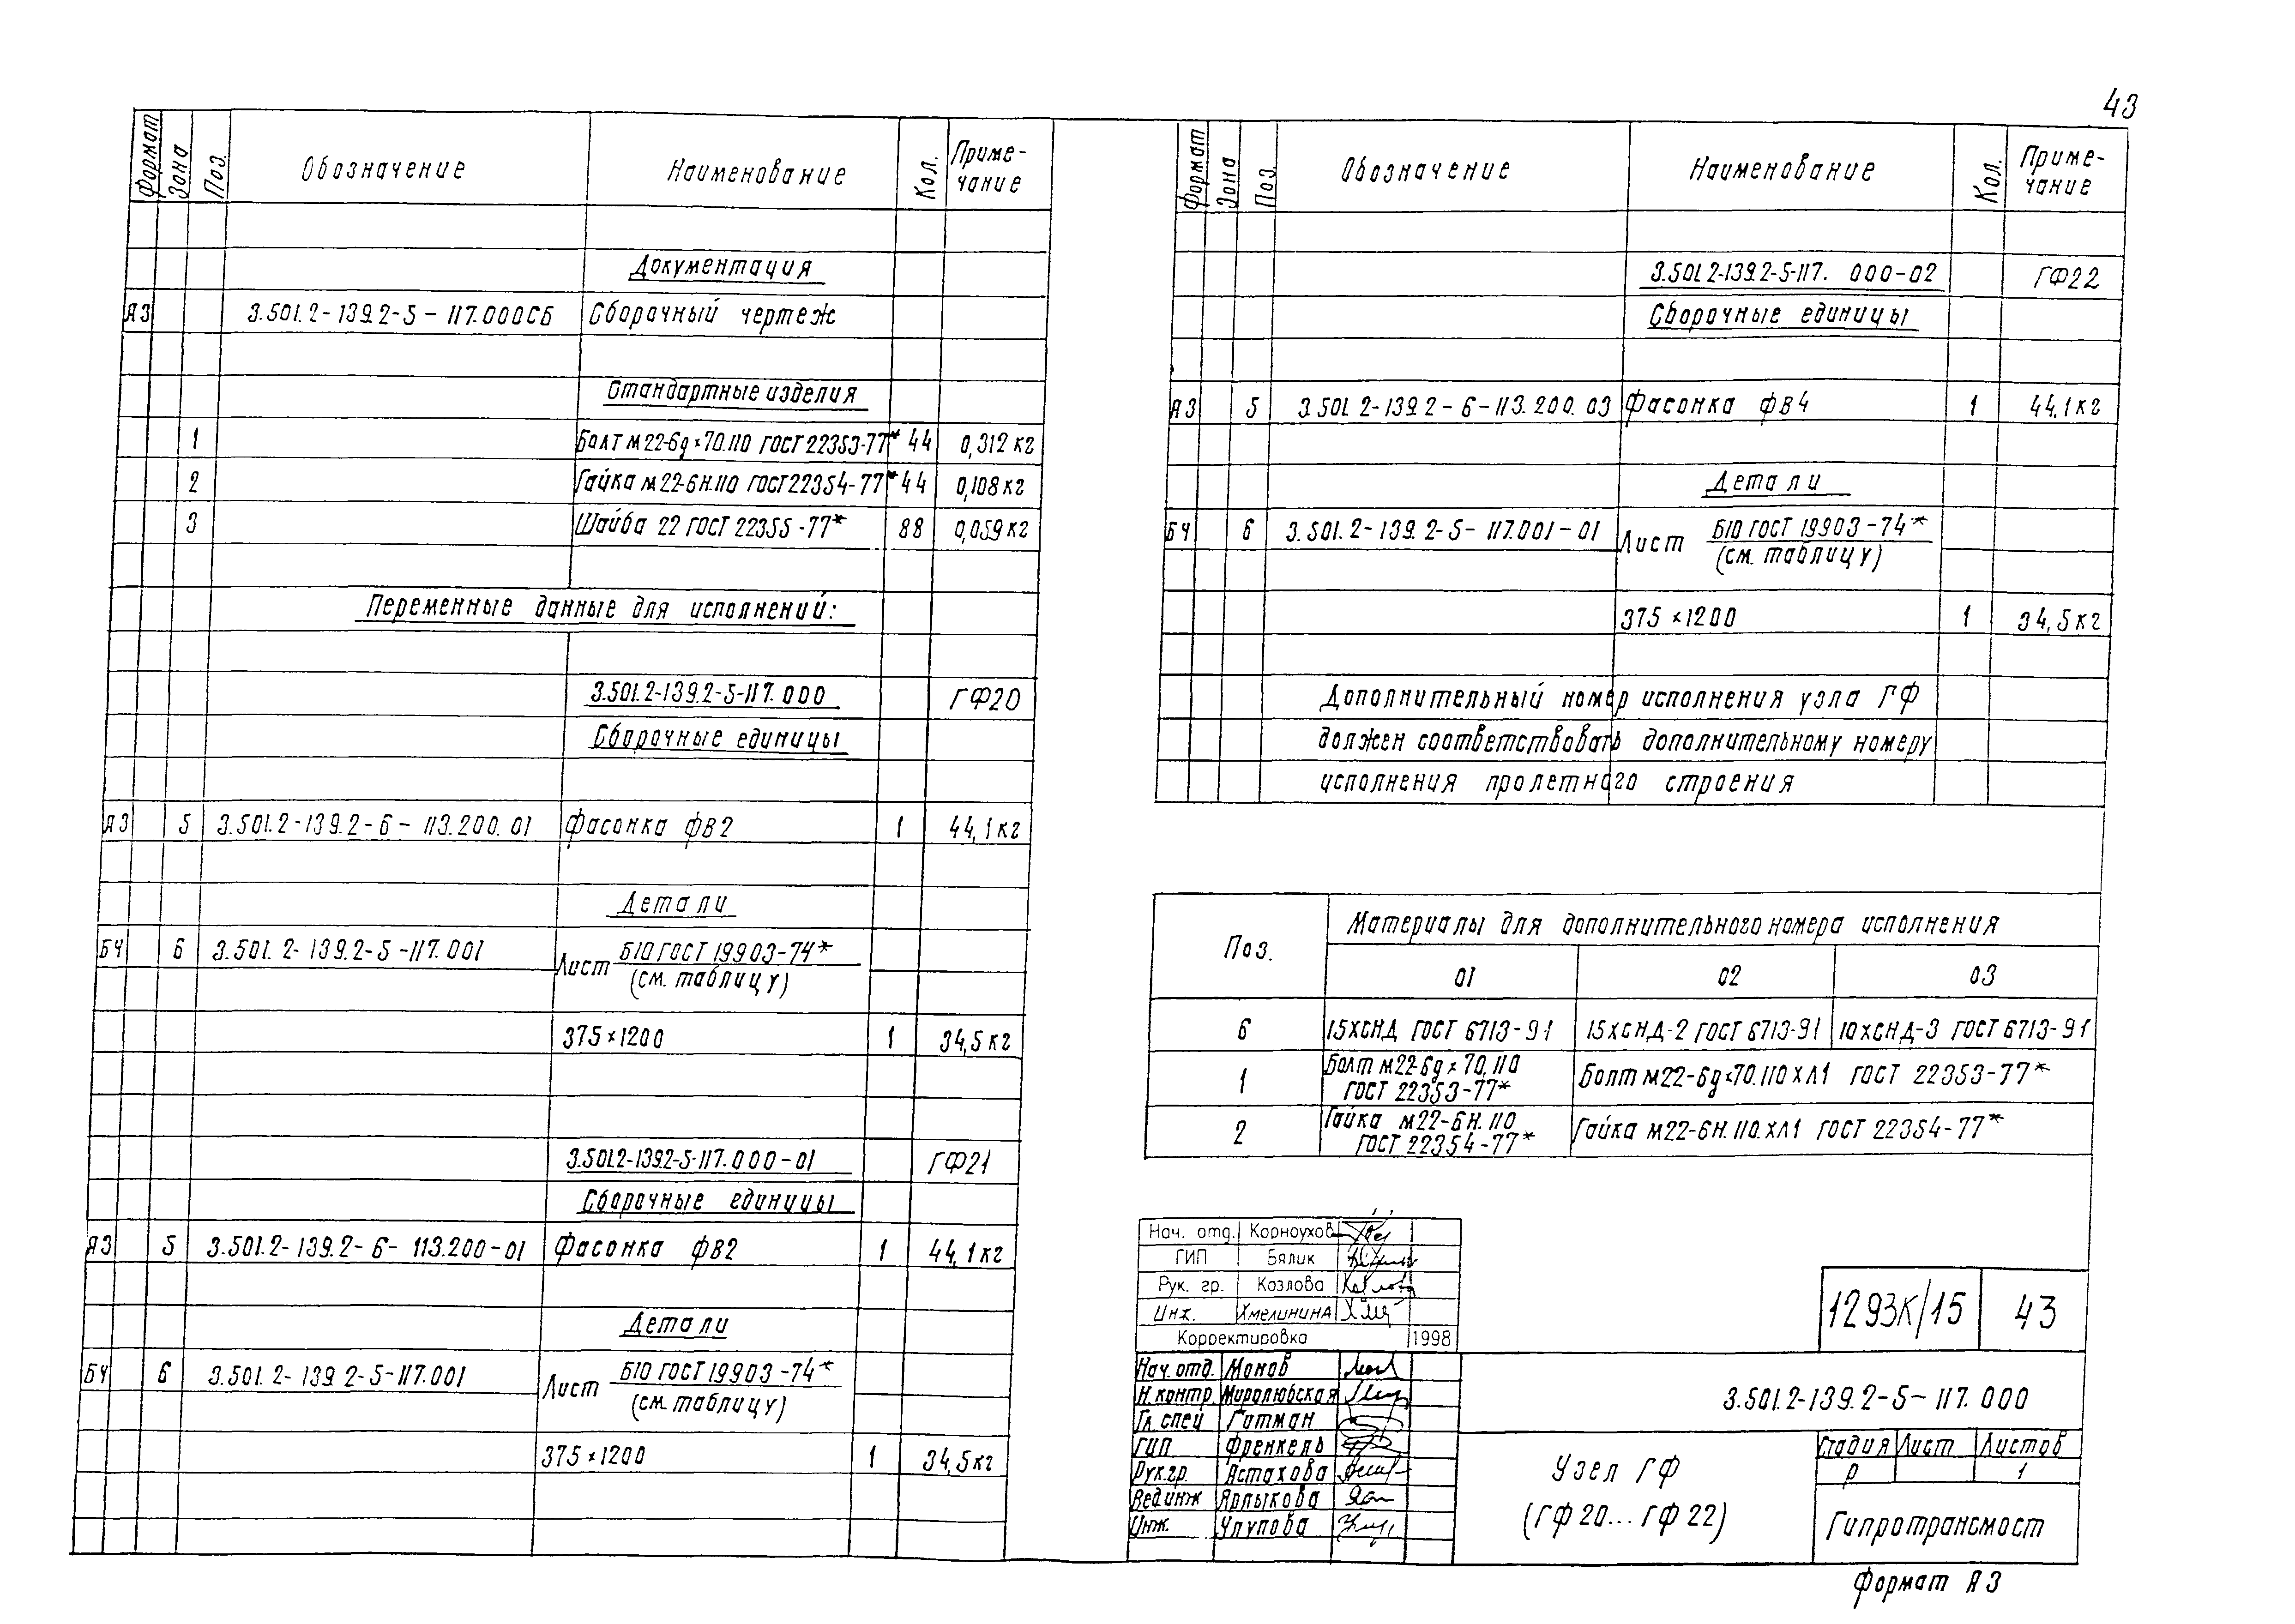 43
Формат Зона Поз. Обозначение Наименование Кол. Приме-чание
Документация
А3 3.501.2-139.2-5-117.000СБ Сборочный чертеж
Стандартные изделия
1 Болт М22-6g×70.110 ГОСТ 22353-77* 44 0,312 кг
2 Гайка М22-6Н.110 ГОСТ 22354-77* 44 0,108 кг
3 Шайба 22 ГОСТ 22355-77* 88 0,059 кг
Переменные данные для исполнений:
3.501.2-139.2-5-117.000 ГФ20
Сборочные единицы
А3 5 3.501.2-139.2-6-113.200.01 Фасонка ФВ2 1 44,1 кг
Детали
БЧ 6 3.501.2-139.2-5-117.001 Лист Б10 ГОСТ 19903-74*
(см. таблицу)
375×1200 1 34,5 кг
3.501.2-139.2-5-117.000-01 ГФ21
Сборочные единицы
А3 5 3.501.2-139.2-6-113.200-01 Фасонка ФВ2 1 44,1 кг
Детали
БЧ 6 3.501.2-139.2-5-117.001 Лист Б10 ГОСТ 19903-74*
(см. таблицу)
375×1200 1 34,5 кг
Формат Зона Поз. Обозначение Наименование Кол. Приме-чание
3.501.2-139.2-5-117.000-02 ГФ22
Сборочные единицы
А3 5 3.501.2-139.2-6-113.200.03 Фасонка ФВ4 1 44,1 кг
Детали
БЧ 6 3.501.2-139.2-5-117.001-01 Лист Б10 ГОСТ 19903-74*
(см. таблицу)
375×1200 1 34,5 кг
Дополнительный номер исполнения узла ГФ
должен соответствовать дополнительному номеру
исполнения пролетного строения
Поз. Материалы для дополнительного номера исполнения
01 02 03
6 15ХСНД ГОСТ 6713-91 15ХСНД-2 ГОСТ 6713-91 10ХСНД-3 ГОСТ 6713-91
1 Болт М22-6g×70.110 ГОСТ 22353-77* Болт М22-6g×70.110ХЛ1 ГОСТ 22353-77*
2 Гайка М22-6Н.110 ГОСТ 22354-77* Гайка М22-6Н.110.ХЛ1 ГОСТ 22354-77*
Нач. отд. Корноухов
ГИП Бялик
Рук. гр. Козлова
Инж. Хмелинина
Корректировка 1998
Нач. отд. Монов
Н.контр. Миролюбская
Гл. спец Гитман
ГИП Френкель
Рук.гр. Астахова
Вед.инж Ярлыкова
Инж. Улупова
1293К/15 43
3.501.2-139.2-5-117.000
Узел ГФ
(ГФ20...ГФ22)
Стадия Лист Листов
Р 1
Гипротрансмост
Формат А3